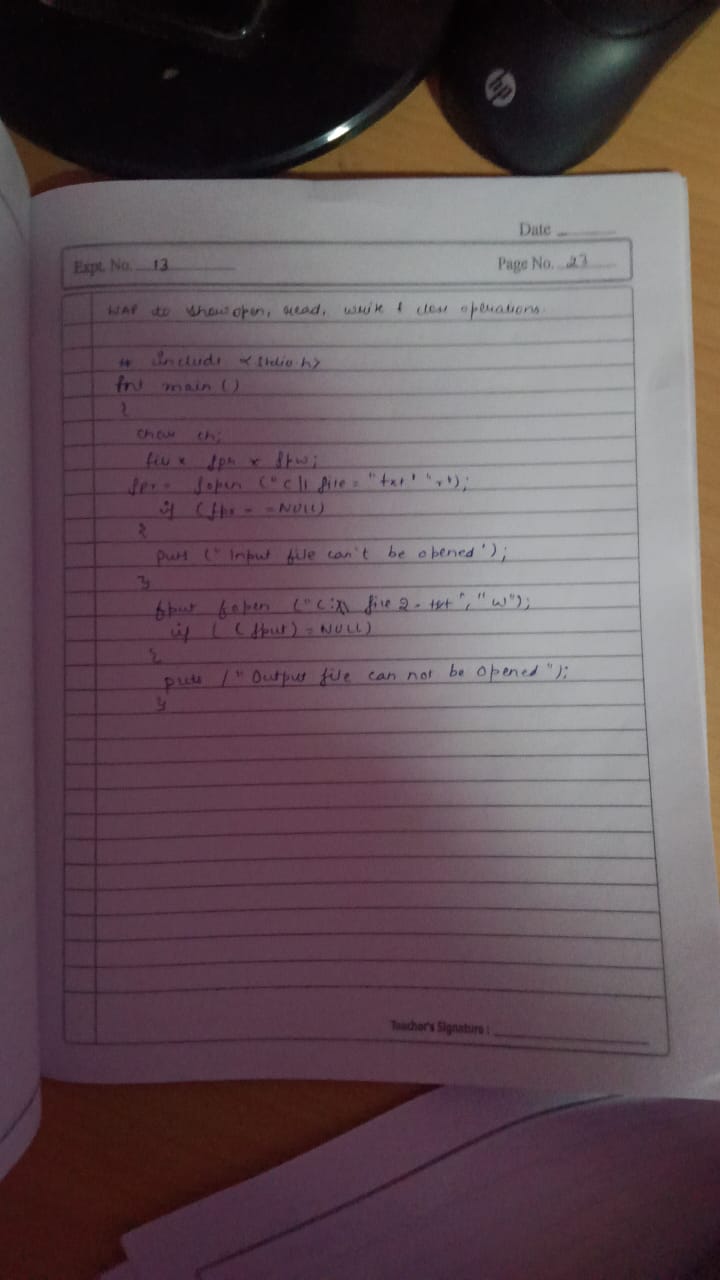 hp
Date
Expt. No. 13
Page No. 23
WAP to show open, read, write & close operations.
# include < stdio h>
int main ()
{
char ch;
file * fpr * fpw;
fpr = fopen ("C\\ file = "txt' "r');
if (fpr = = NULL)
{
puts (" Input file can't be opened');
}
fput fopen ("C:\\ file 2. txt", "w");
if ( ( fput) = NULL)
{
puts / " Output file can not be opened ");
}
Teacher's Signature :